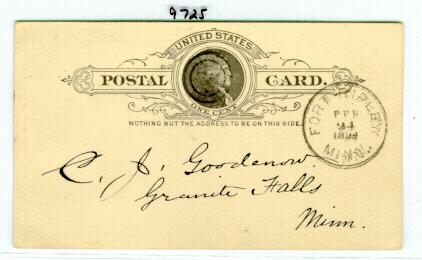 9725
UNITED STATES
POSTAL CARD.
ONE CENT
NOTHING BUT THE ADDRESS TO BE ON THIS SIDE.
FORT RIPLEY
FEB
24
MINN.
C. J. Goodenow.
Granite Falls
Minn.